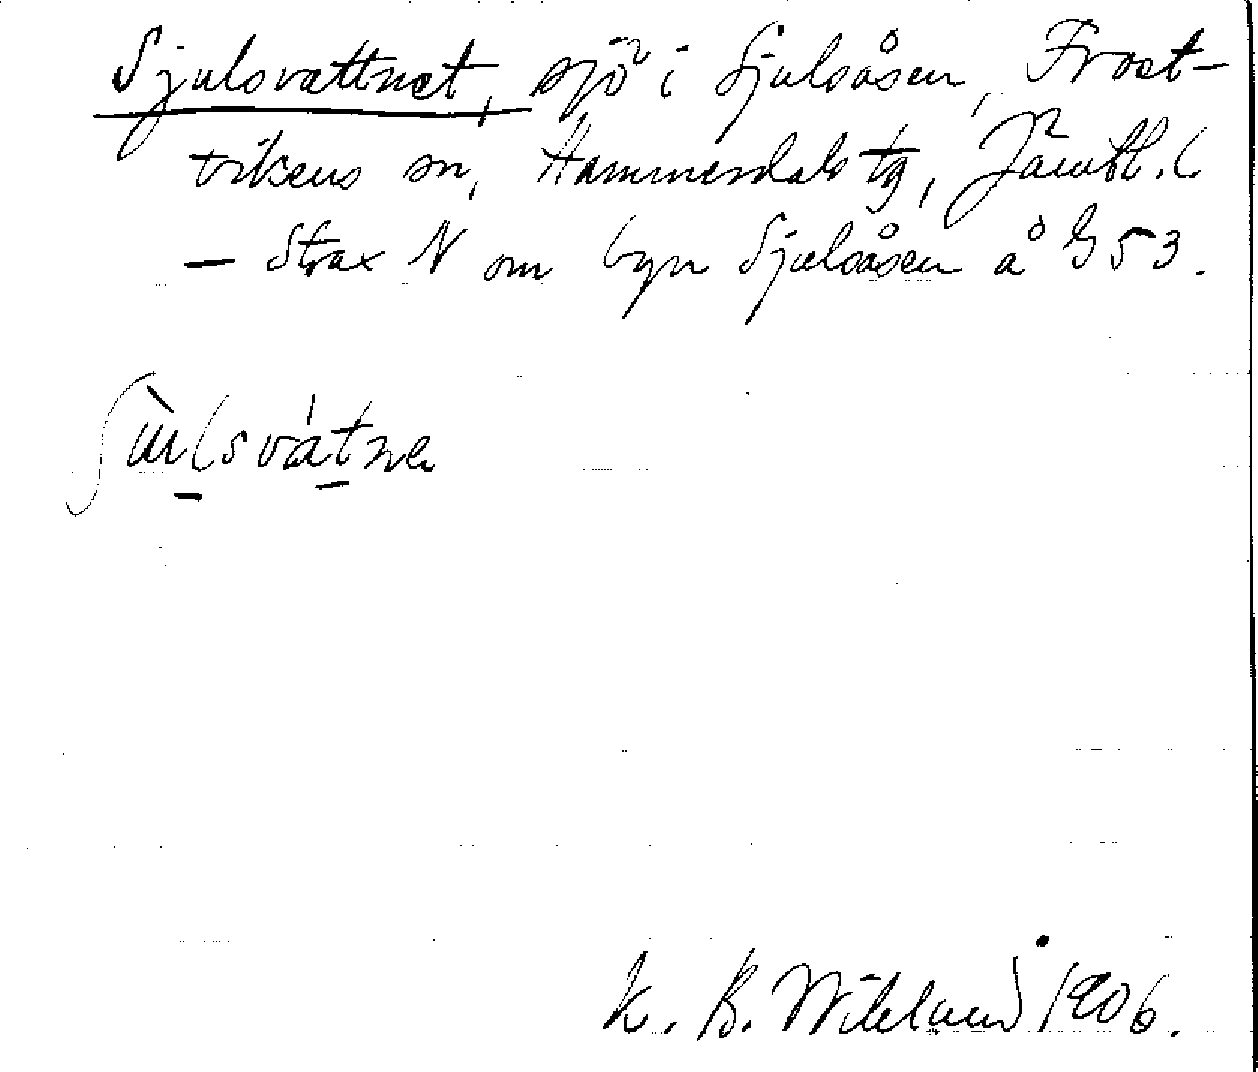 Sjulsvattnet, sjö i Sjulsåsen, Frost-
vikens sn, Hammerdals tg, Jämtl. l.
— Strax N om byn Sjulsåsen å G 53.
ʃùlsvátnɐ
K. B. Wiklund 1906.